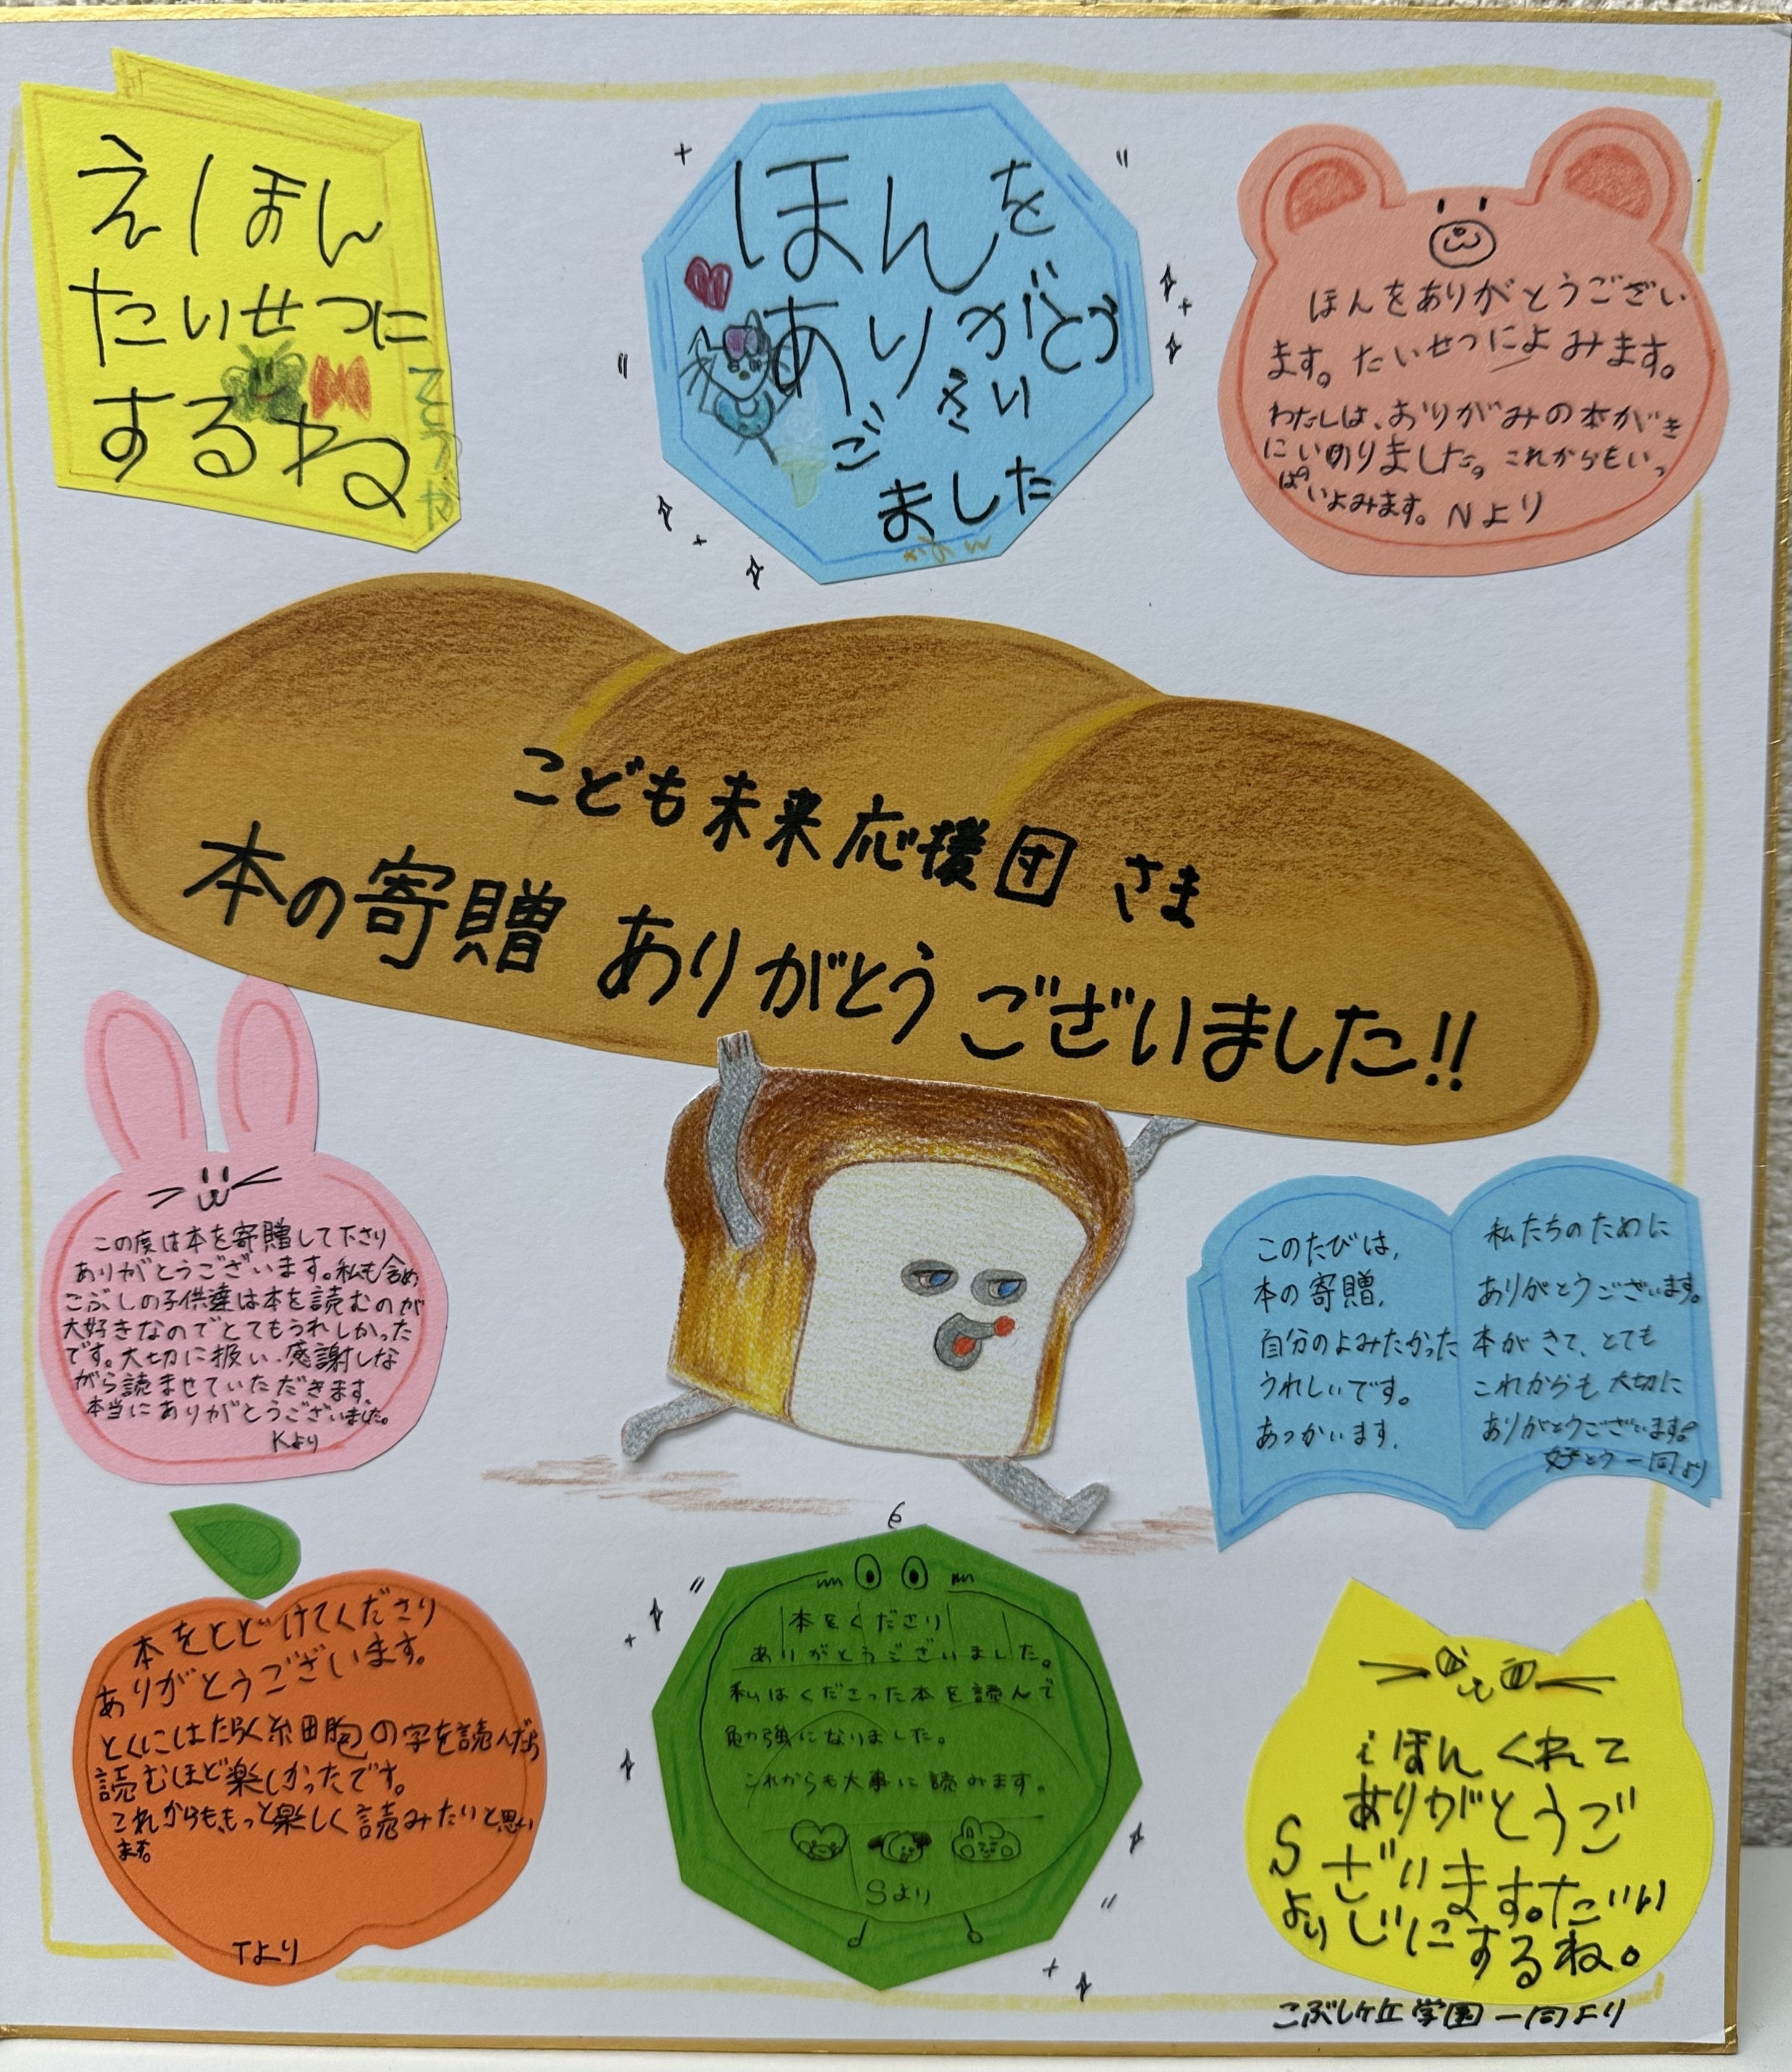 えほん
たいせつに
するね
ほんを
ありがとう
ござい
ました
ほんをありがとうござい
ます。たいせつによみます。
わたしは、おりがみの本がき
にいのりました。これからもいっ
ぱいよみます。Nより
こども未来応援団 さま
本の寄贈 ありがとうございました!!
この度は本を寄贈して下さり
ありがとうございます。私も含め
こぶしの子供達は本を読むのが
大好きなのでとてもうれしかった
です。大切に扱い、感謝しな
がら読ませていただきます。
本当にありがとうございました。
Kより
このたびは、私たちのために
本の寄贈、ありがとうございます。
自分のよみたかった本がきて、とても
うれしいです。これからも大切に
あつかいます。ありがとうございます。
一同より
本をとどけてくださり
ありがとうございます。
とくにはたらく細胞の字を読んだら
読むほど楽しかったです。
これからももっと楽しく読みたいと思い
ます。
Tより
本をくださり
ありがとうございました。
私はくださった本を読んで
勉強になりました。
これからも大事に読みます。
Sより
えほんくれて
ありがとうご
ざいます。だいい
じにするね。
Sより
こぶしケ丘学園一同より